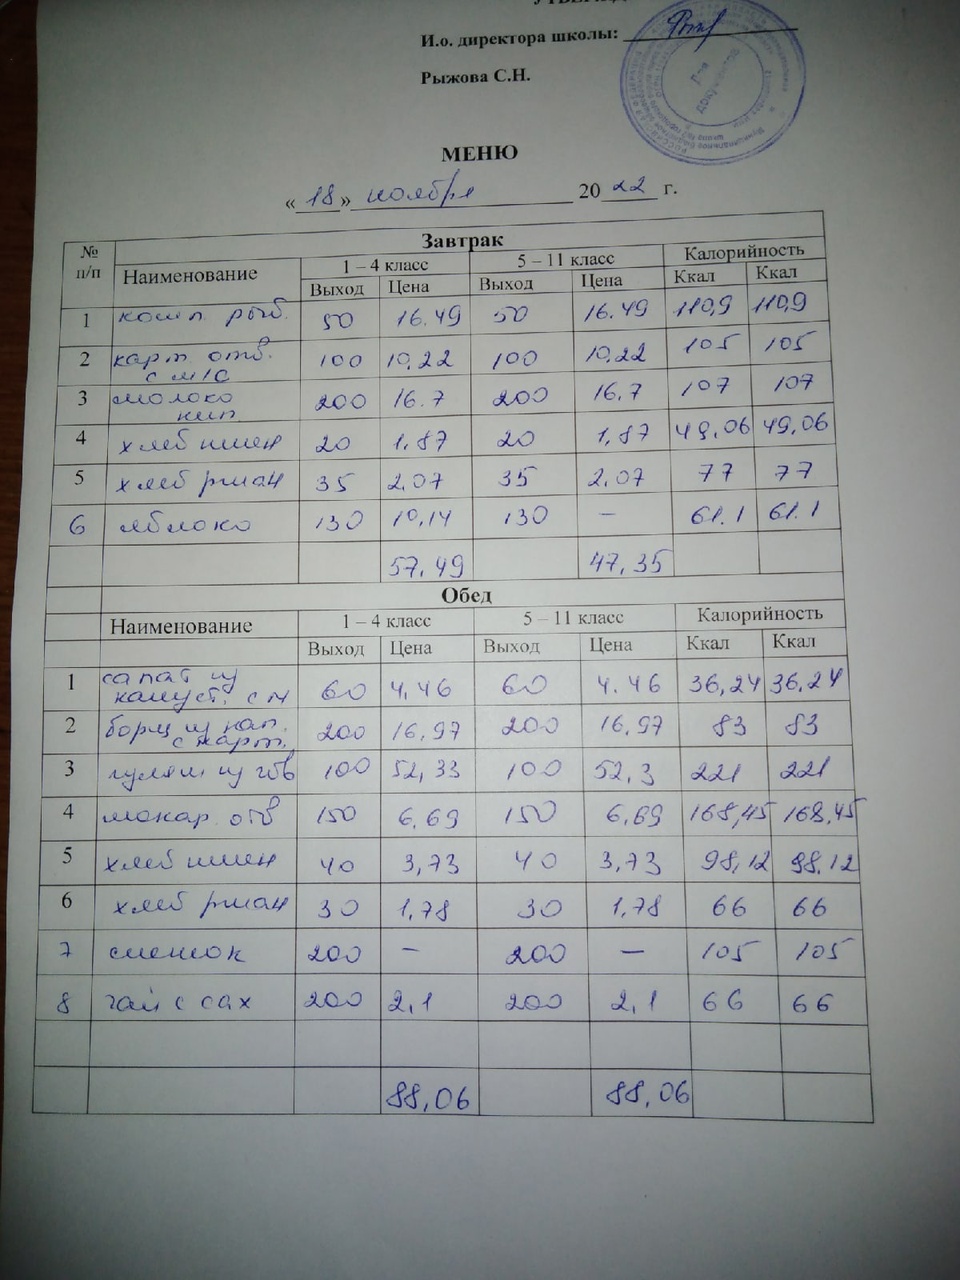 И.о. директора школы:
Рыжова С.Н.
Для документов
МЕНЮ
«18» ноября 2022 г.
№ п/п Наименование Завтрак
1 – 4 класс 5 – 11 класс Калорийность
Выход Цена Выход Цена Ккал Ккал
1 котл. рыб. 50 16.49 50 16.49 110,9 110,9
2 карт. отв. 100 10,22 100 10,22 105 105
с м/с
3 молоко 200 16.7 200 16,7 107 107
кип.
4 хлеб пшен 20 1,87 20 1,87 49,06 49,06
5 хлеб ржан 35 2,07 35 2,07 77 77
6 яблоко 130 10,14 130 – 61.1 61.1
57,49 47,35
Обед
Наименование 1 – 4 класс 5 – 11 класс Калорийность
Выход Цена Выход Цена Ккал Ккал
1 салат из 60 4,46 60 4.46 36,24 36,24
капуст. с м
2 борщ из кап. 200 16,97 200 16,97 83 83
с карт.
3 гуляш из гов 100 52,33 100 52,3 221 221
4 макар. отв 150 6,69 150 6,69 168,45 168,45
5 хлеб пшен 40 3,73 40 3,73 98,12 98,12
6 хлеб ржан 30 1,78 30 1,78 66 66
7 снежок 200 – 200 – 105 105
8 чай с сах 200 2,1 200 2,1 66 66
88,06 88,06